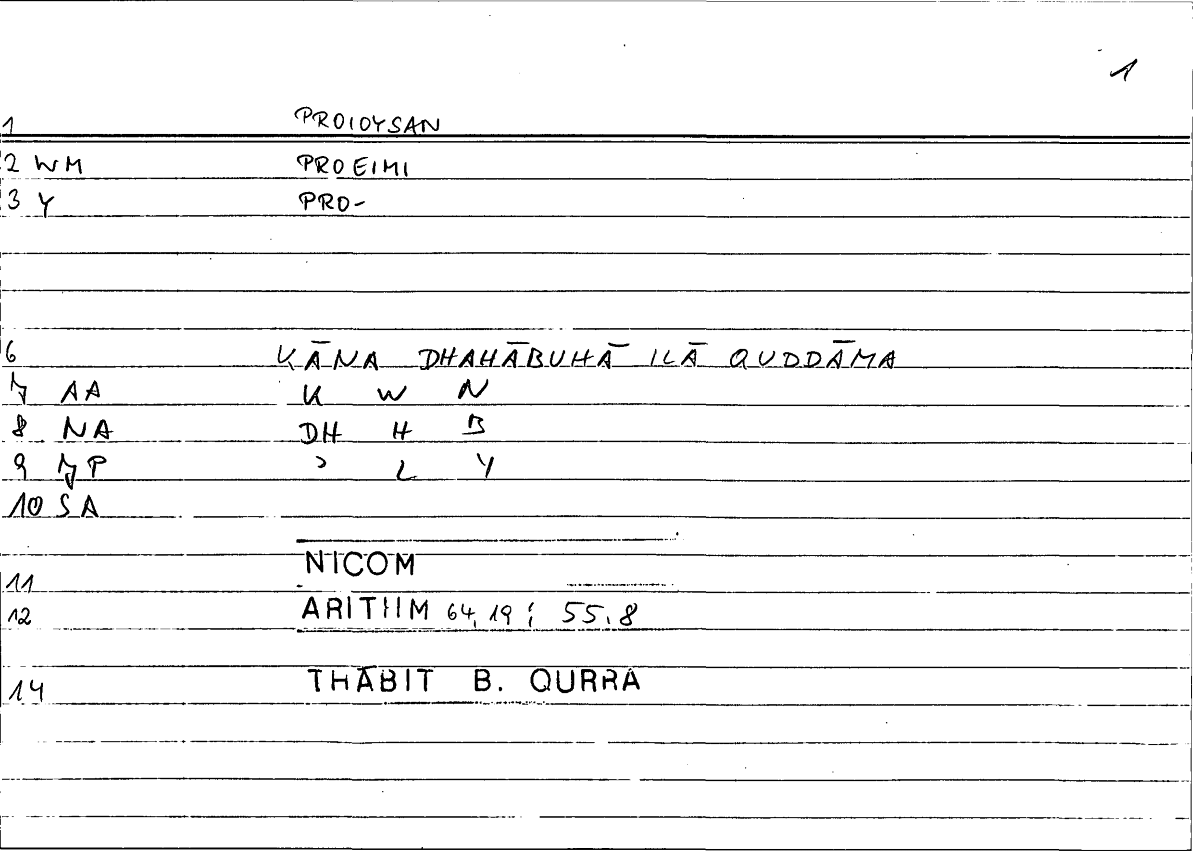 1
1 PROIOYSAN
2 WM PROEIMI
3 Y PRO-
6 KĀNA DHAHĀBUHĀ ILĀ QUDDĀMA
7 AA K W N
8 NA DH H B
9 7P ʾ L Y
10 SA
11 NICOM
12 ARITHM 64,19; 55.8
14 THĀBIT B. QURRA